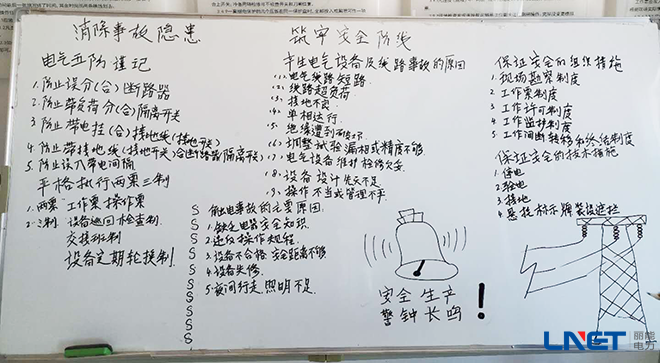 消除事故隐患 筑牢安全防线
电气五防谨记
1.防止误分(合)断路器
2.防止带负荷分(合)隔离开关
3.防止带电挂(合)接地线(接地开关)
4.防止带接地线(接地开关)合断路器(隔离开关)
5.防止误入带电间隔
严格执行两票三制
1.两票 工作票 操作票
2.三制 设备巡回检查制
交接班制
设备定期轮换制
产生电气设备及线路事故的原因
(1)电气线路短路
(2)线路超负荷
(3)接地不良
(4)单相运行
(5)绝缘遭到破坏
(6)调整试验漏相或精度不够
(7)电气设备维护检修欠妥
(8)设备设计先天不足
(9)操作不当或管理不严
触电事故的主要原因
1.缺乏电器安全知识
2.违反操作规程
3.设备不合格 安全距离不够
4.设备失修
5.夜间行走,照明不足
安全生产
警钟长鸣!
保证安全的组织措施
1.现场勘察制度
2.工作票制度
3.工作许可制度
4.工作监护制度
5.工作间断转移和终结制度
保证安全的技术措施
1.停电
2.验电
3.接地
4.悬挂标示牌装设遮拦
LNET 丽能电力